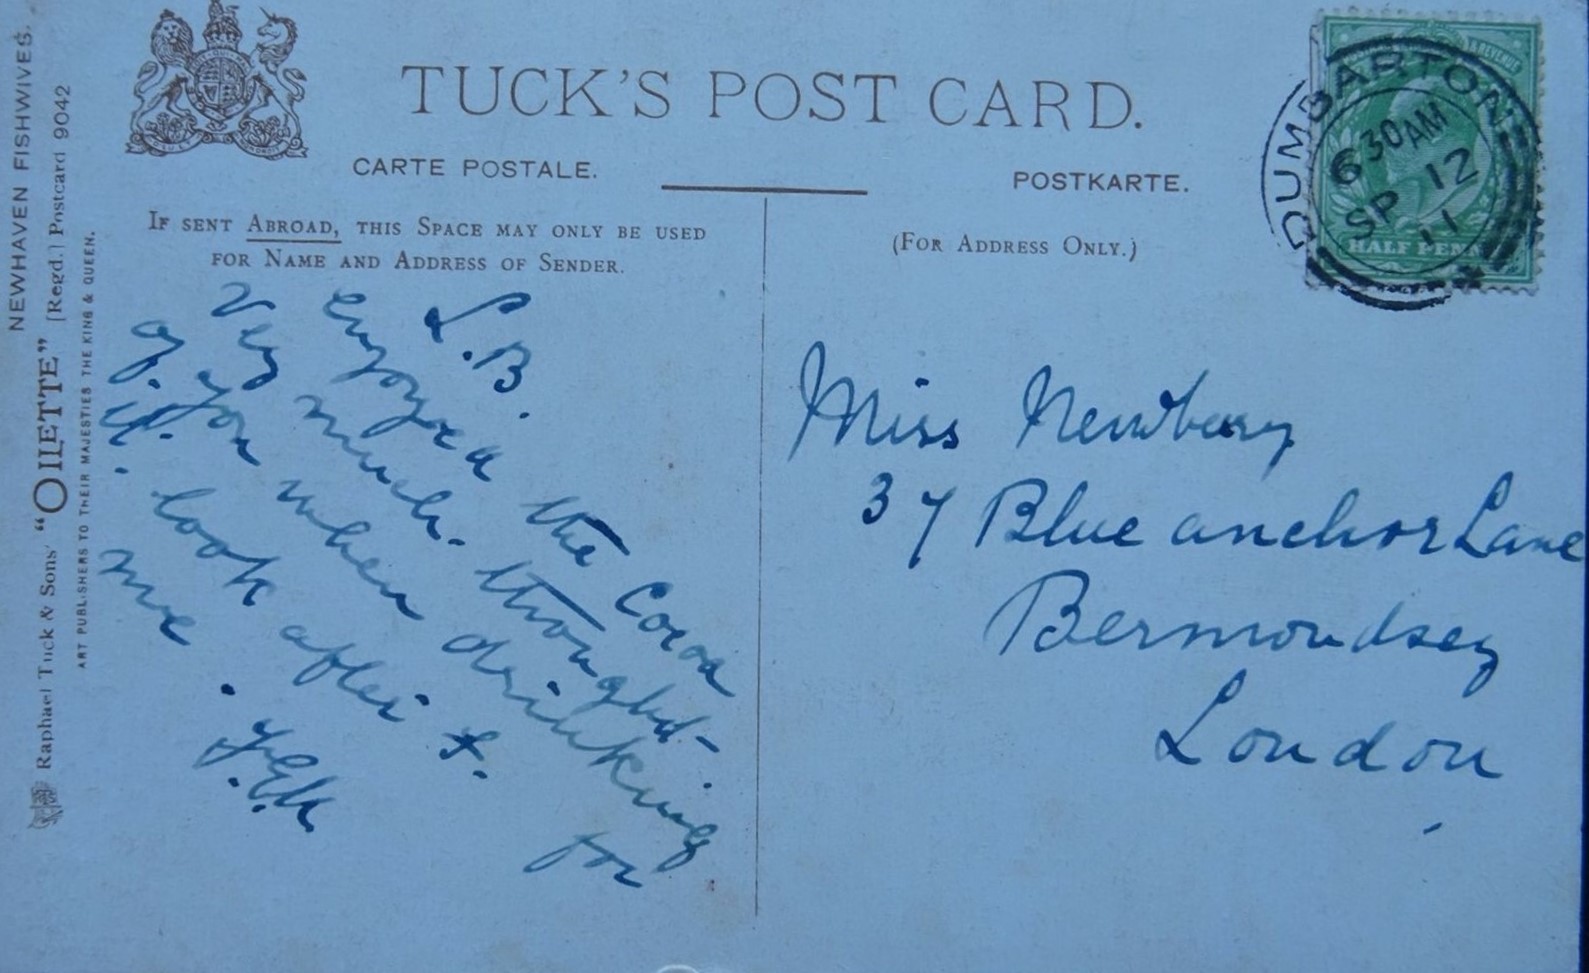 TUCK'S POST CARD.
CARTE POSTALE.
POSTKARTE.
IF SENT ABROAD, THIS SPACE MAY ONLY BE USED
FOR NAME AND ADDRESS OF SENDER.
(FOR ADDRESS ONLY.)
NEWHAVEN FISHWIVES.
Raphael Tuck & Sons' "OILETTE" [Regd.] Postcard 9042
ART PUBLISHERS TO THEIR MAJESTIES THE KING & QUEEN.
DUMBARTON
6 30 AM
SP 12
11
& REVENUE
HALF PENNY
L.B.
enjoyed the Cocoa
very much. thought-
of you when drinking
it. look after F. for
me.
Miss Newbery
37 Blue anchor Lane
Bermondsey
London